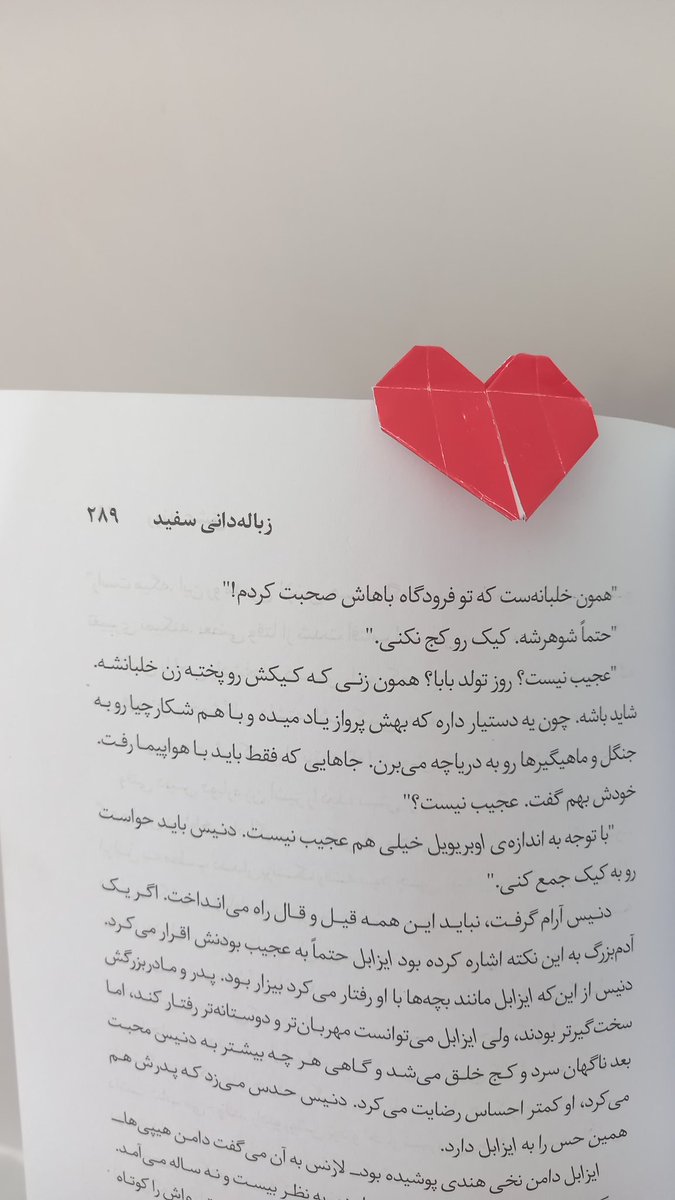 زباله‌دانی سفید ۲۸۹
"همون خلبانه‌ست که تو فرودگاه باهاش صحبت کردم!"
"حتماً شوهرشه. کیک رو کج نکنی."
"عجیب نیست؟ روز تولد بابا؟ همون زنی که کیکش رو پخته زن خلبانشه.
شاید باشه. چون یه دستیار داره که بهش پرواز یاد میده و با هم شکارچیا رو به
جنگل و ماهیگیرها رو به دریاچه می‌برن. جاهایی که فقط باید با هواپیما رفت.
خودش بهم گفت. عجیب نیست؟"
"با توجه به اندازه‌ی اوبریویل خیلی هم عجیب نیست. دنیس باید حواست
رو به کیک جمع کنی."
دنیس آرام گرفت، نباید این همه قیل و قال راه می‌انداخت. اگر یک
آدم‌بزرگ به این نکته اشاره کرده بود ایزابل حتماً به عجیب بودنش اقرار می‌کرد.
دنیس از این‌که ایزابل مانند بچه‌ها با او رفتار می‌کرد بیزار بود. پدر و مادربزرگش
سخت‌گیرتر بودند، ولی ایزابل می‌توانست مهربان‌تر و دوستانه‌تر رفتار کند، اما
بعد ناگهان سرد و کج خلق می‌شد و گاهی هر چه بیشتر به دنیس محبت
می‌کرد، او کمتر احساس رضایت می‌کرد. دنیس حدس می‌زد که پدرش هم
همین حس را به ایزابل دارد.
ایزابل دامن نخی هندی پوشیده بود_ لارنس به آن می‌گفت دامن هیپی‌ها_
به نظر بیست و نه ساله می‌آمد.
را کوتاه